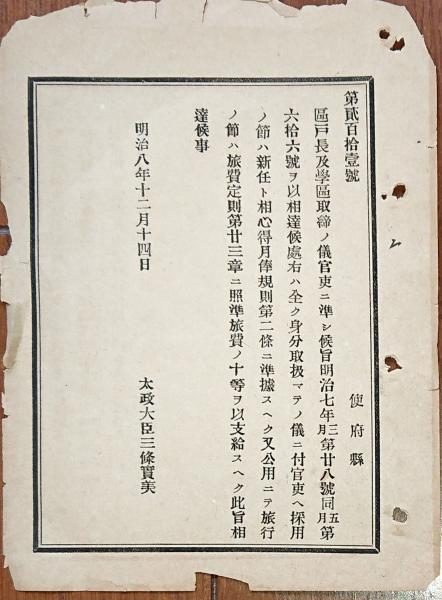 第貳百拾壹號
使府縣
區戸長及學區取締ノ儀官吏ニ準シ候旨明治七年三月第廿八號同五月第
六拾六號ヲ以相達候處右ハ全ク身分取扱マテノ儀ニ付官吏ヘ採用
ノ節ハ新任ト相心得月俸規則第二條ニ準據スヘク又公用ニテ旅行
ノ節ハ旅費定則第廿三章ニ照準旅費ノ十等ヲ以支給スヘク此旨相
達候事
明治八年十二月十四日
太政大臣三條實美